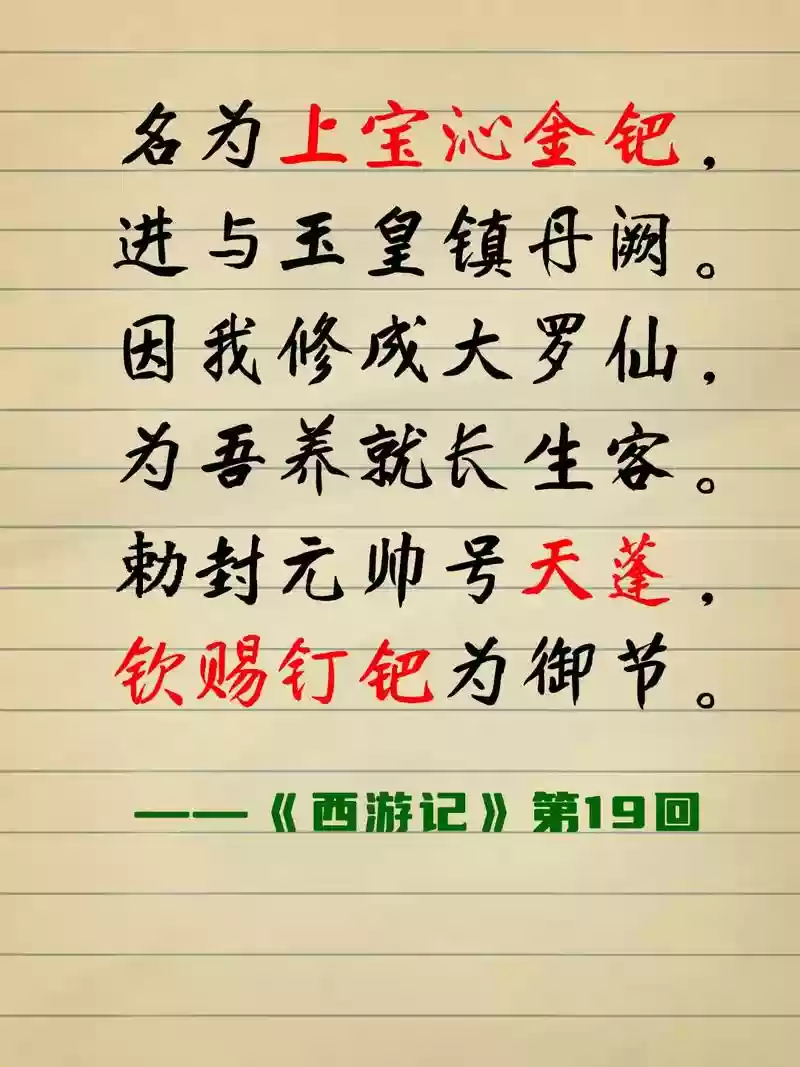 名为上宝沁金钯，
进与玉皇镇丹阙。
因我修成大罗仙，
为吾养就长生客。
勅封元帅号天蓬，
钦赐钉钯为御节。
——《西游记》第19回